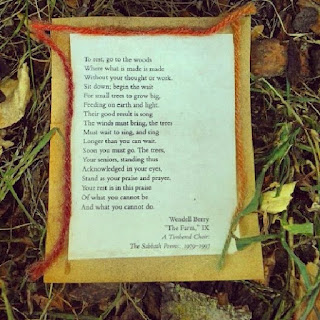 To rest, go to the woods
Where what is made is made
Without your thought or work.
Sit down; begin the wait
For small trees to grow big,
Feeding on earth and light.
Their good result is song
The winds must bring, the trees
Must wait to sing, and sing
Longer than you can wait.
Soon you must go. The trees,
Your seniors, standing thus
Acknowledged in your eyes,
Stand as your praise and prayer.
Your rest is in this praise
Of what you cannot be
And what you cannot do.
Wendell Berry
"The Farm," IX
A Timbered Choir:
The Sabbath Poems 1979-1997